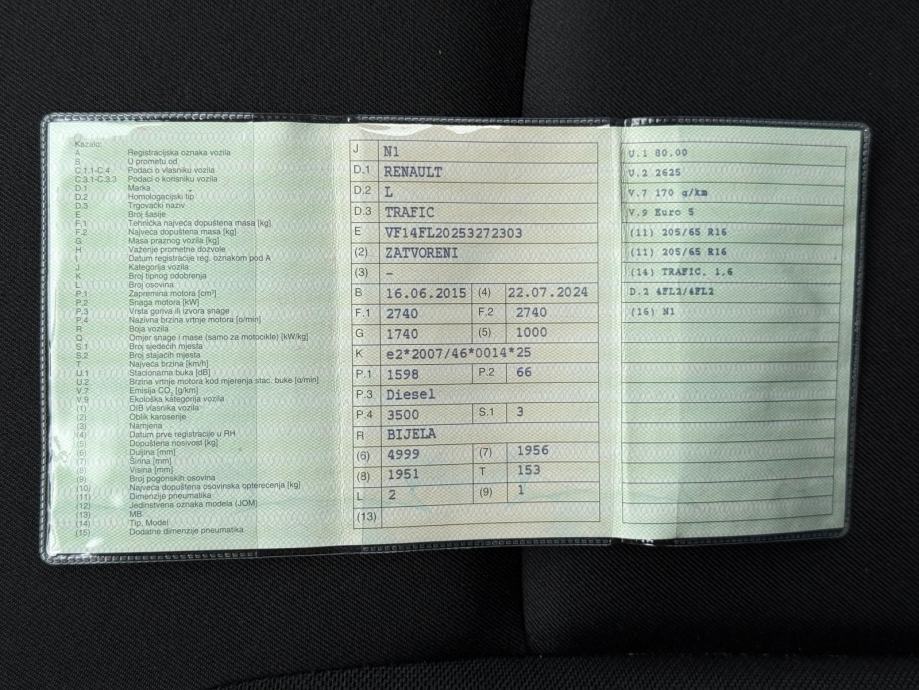 Kazalo:
A Registracijska oznaka vozila
B U prometu od
C.1.1-C.4 Podaci o vlasniku vozila
C.3.1-C.3.3 Podaci o korisniku vozila
D.1 Marka
D.2 Homologacijski tip
D.3 Trgovački naziv
E Broj šasije
F.1 Tehnička najveća dopuštena masa [kg]
F.2 Najveća dopuštena masa [kg]
G Masa praznog vozila [kg]
H Važenje prometne dozvole
I Datum registracije reg. oznakom pod A
J Kategorija vozila
K Broj tipnog odobrenja
L Broj osovina
P.1 Zapremina motora [cm³]
P.2 Snaga motora [kW]
P.3 Vrsta goriva ili izvora snage
P.4 Nazivna brzina vrtnje motora [o/min]
R Boja vozila
Q Omjer snage i mase (samo za motocikle) [kW/kg]
S.1 Broj sjedećih mjesta
S.2 Broj stajaćih mjesta
T Najveća brzina [km/h]
U.1 Stacionarna buka [dB]
U.2 Brzina vrtnje motora kod mjerenja stac. buke [o/min]
V.7 Emisija CO₂ [g/km]
V.9 Ekološka kategorija vozila
(1) OIB vlasnika vozila
(2) Oblik karoserije
(3) Namjena
(4) Datum prve registracije u RH
(5) Dopuštena nosivost [kg]
(6) Duljina [mm]
(7) Širina [mm]
(8) Visina [mm]
(9) Broj pogonskih osovina
(10) Najveća dopuštena osovinska opterećenja [kg]
(11) Dimenzije pneumatika
(12) Jedinstvena oznaka modela (JOM)
(13) MB
(14) Tip, Model
(15) Dodatne dimenzije pneumatika
J N1
D.1 RENAULT
D.2 L
D.3 TRAFIC
E VF14FL20253272303
(2) ZATVORENI
(3) –
B 16.06.2015 (4) 22.07.2024
F.1 2740 F.2 2740
G 1740 (5) 1000
K e2*2007/46*0014*25
P.1 1598 P.2 66
P.3 Diesel
P.4 3500 S.1 3
R BIJELA
(6) 4999 (7) 1956
(8) 1951 T 153
L 2 (9) 1
(13)
U.1 80.00
U.2 2625
V.7 170 g/km
V.9 Euro 5
(11) 205/65 R16
(11) 205/65 R16
(14) TRAFIC, 1.6
D.2 4FL2/4FL2
(16) N1